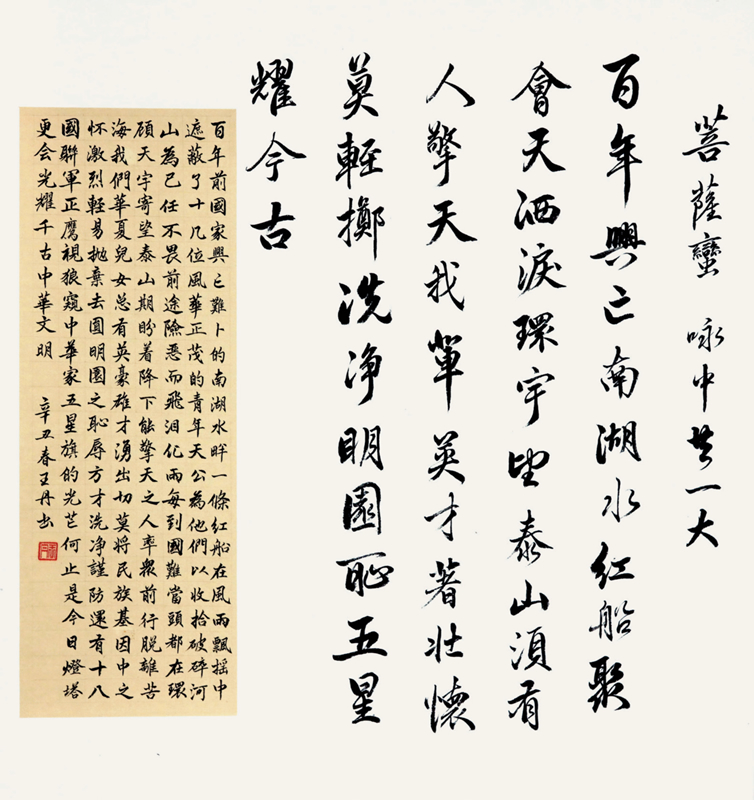 菩薩蠻 咏中共一大
百年興亡南湖水紅船聚
會天洒淚環宇望泰山須有
人擎天我輩英才著壯懷
莫輕擲洗净明園恥五星
耀今古
百年前國家興亡難卜的南湖水畔一條紅船在風雨飄摇中
遮蔽了十几位風華正茂的青年天公為他們以收拾破碎河
山為己任不畏前途險惡而飛泪化雨每到國難當頭都在環
顧天宇寄望泰山期盼着降下能擎天之人率衆前行脱離苦
海我們華夏兒女总有英豪雄才湧出切莫將民族基因中之
怀激烈輕易抛棄去圆明園之恥辱方才洗净謹防還有十八
國聯軍正鹰視狼窺中華家五星旗的光芒何止是今日燈塔
更会光耀千古中華文明 辛丑春王丹书